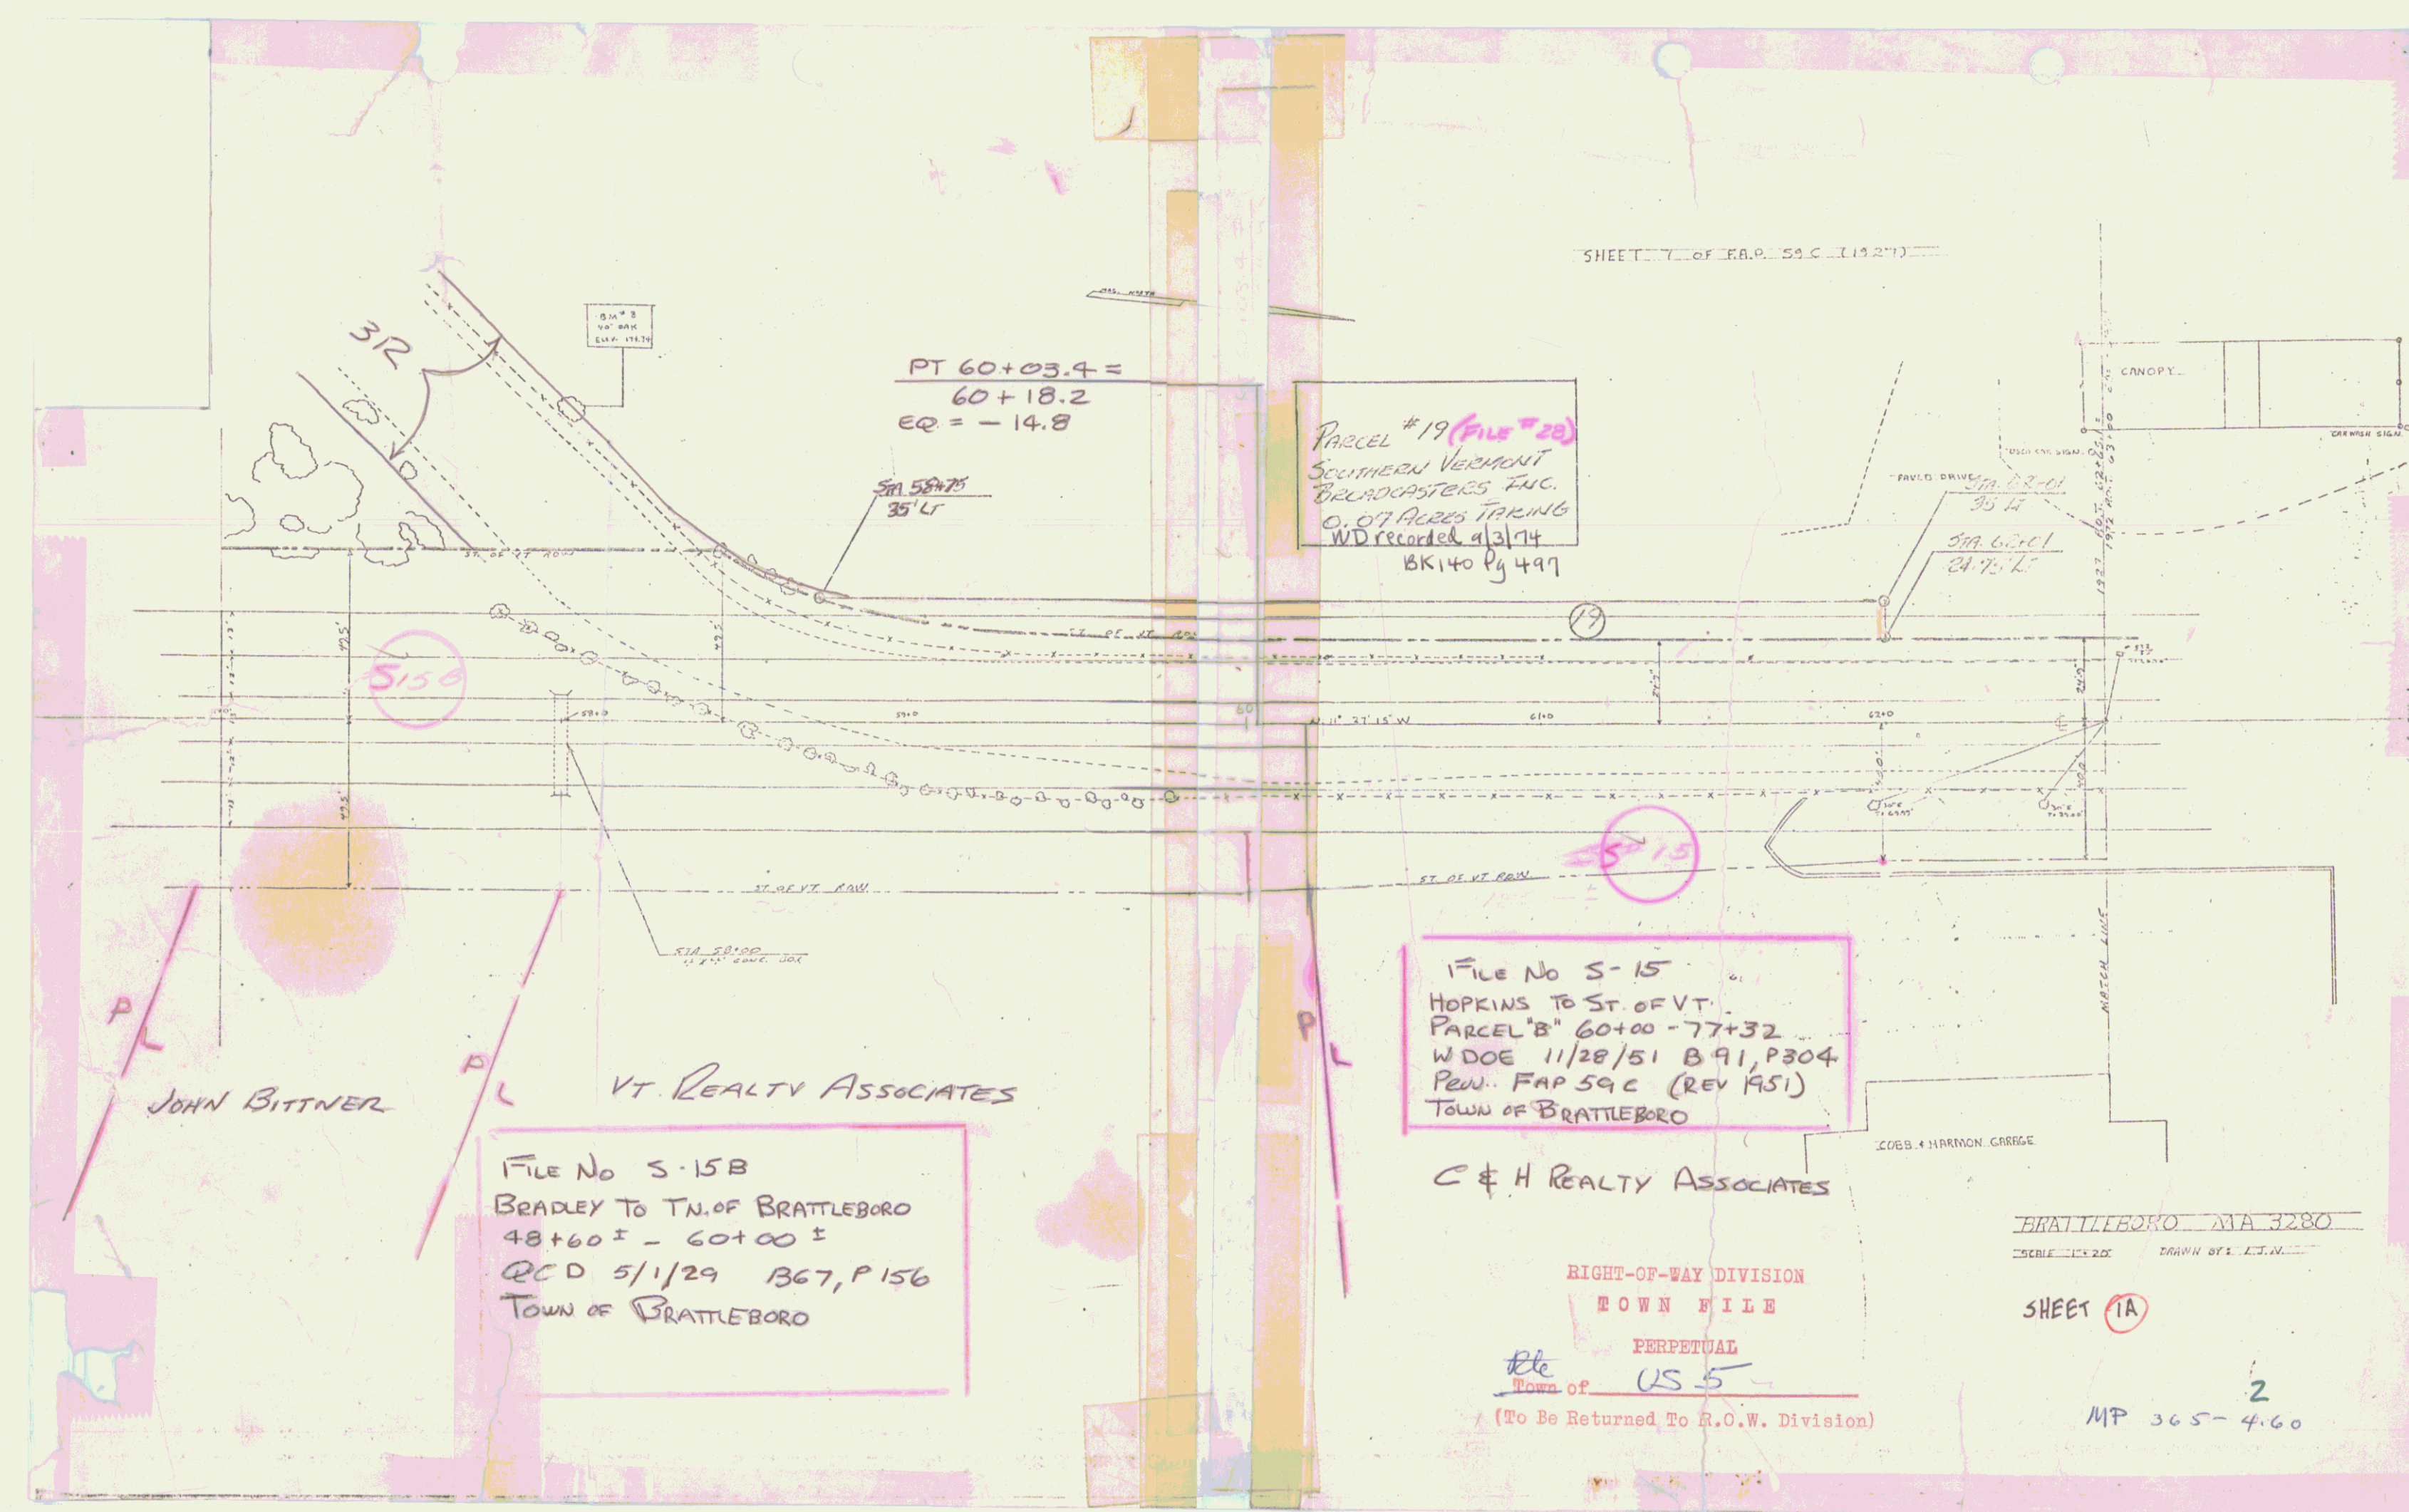 SHEET 7 OF F.A.P. 59 C (1927)
MAG. NORTH
3R
BM # 3
40" OAK
PT 60+03.4 =
60+18.2
EQ. = - 14.8
STA 58+75
35' LT
PARCEL #19 (FILE #28)
SOUTHERN VERMONT
BROADCASTERS INC.
0.07 ACRES TAKING
WD recorded 9/3/74
BK140 Pg 497
CANOPY
CAR WASH SIGN
USED CAR SIGN
PAVED DRIVE
STA. 62+01
35' LT
STA. 62+01
24.75' LT
ST. OF VT ROW
ST. OF VT. ROW
19
49.5'
49.5'
S15B
58+0
59+0
60
N 11° 37' 15" W
61+0
62+0
24.75'
24.75'
49.5'
S-15
ST. OF VT. ROW
ST. OF VT ROW
STA. 58+00
MATCH LINE
P
L
P
L
P
L
JOHN BITTNER
VT. REALTY ASSOCIATES
FILE NO S-15B
BRADLEY TO TN. OF BRATTLEBORO
48+60 ± - 60+00 ±
QCD 5/1/29 B67, P156
TOWN OF BRATTLEBORO
FILE NO S-15
HOPKINS TO ST. OF VT.
PARCEL "B" 60+00 - 77+32
WDOE 11/28/51 B 91, P304
FAP 59C (REV 1951)
TOWN OF BRATTLEBORO
COBB & HARMON GARAGE
C & H REALTY ASSOCIATES
BRATTLEBORO MA 3280
SCALE 1"=20' DRAWN BY: L.J.N.
SHEET 1A
RIGHT-OF-WAY DIVISION
TOWN FILE
PERPETUAL
Rte
Town of US 5
(To Be Returned To R.O.W. Division)
2
MP 365-4.60